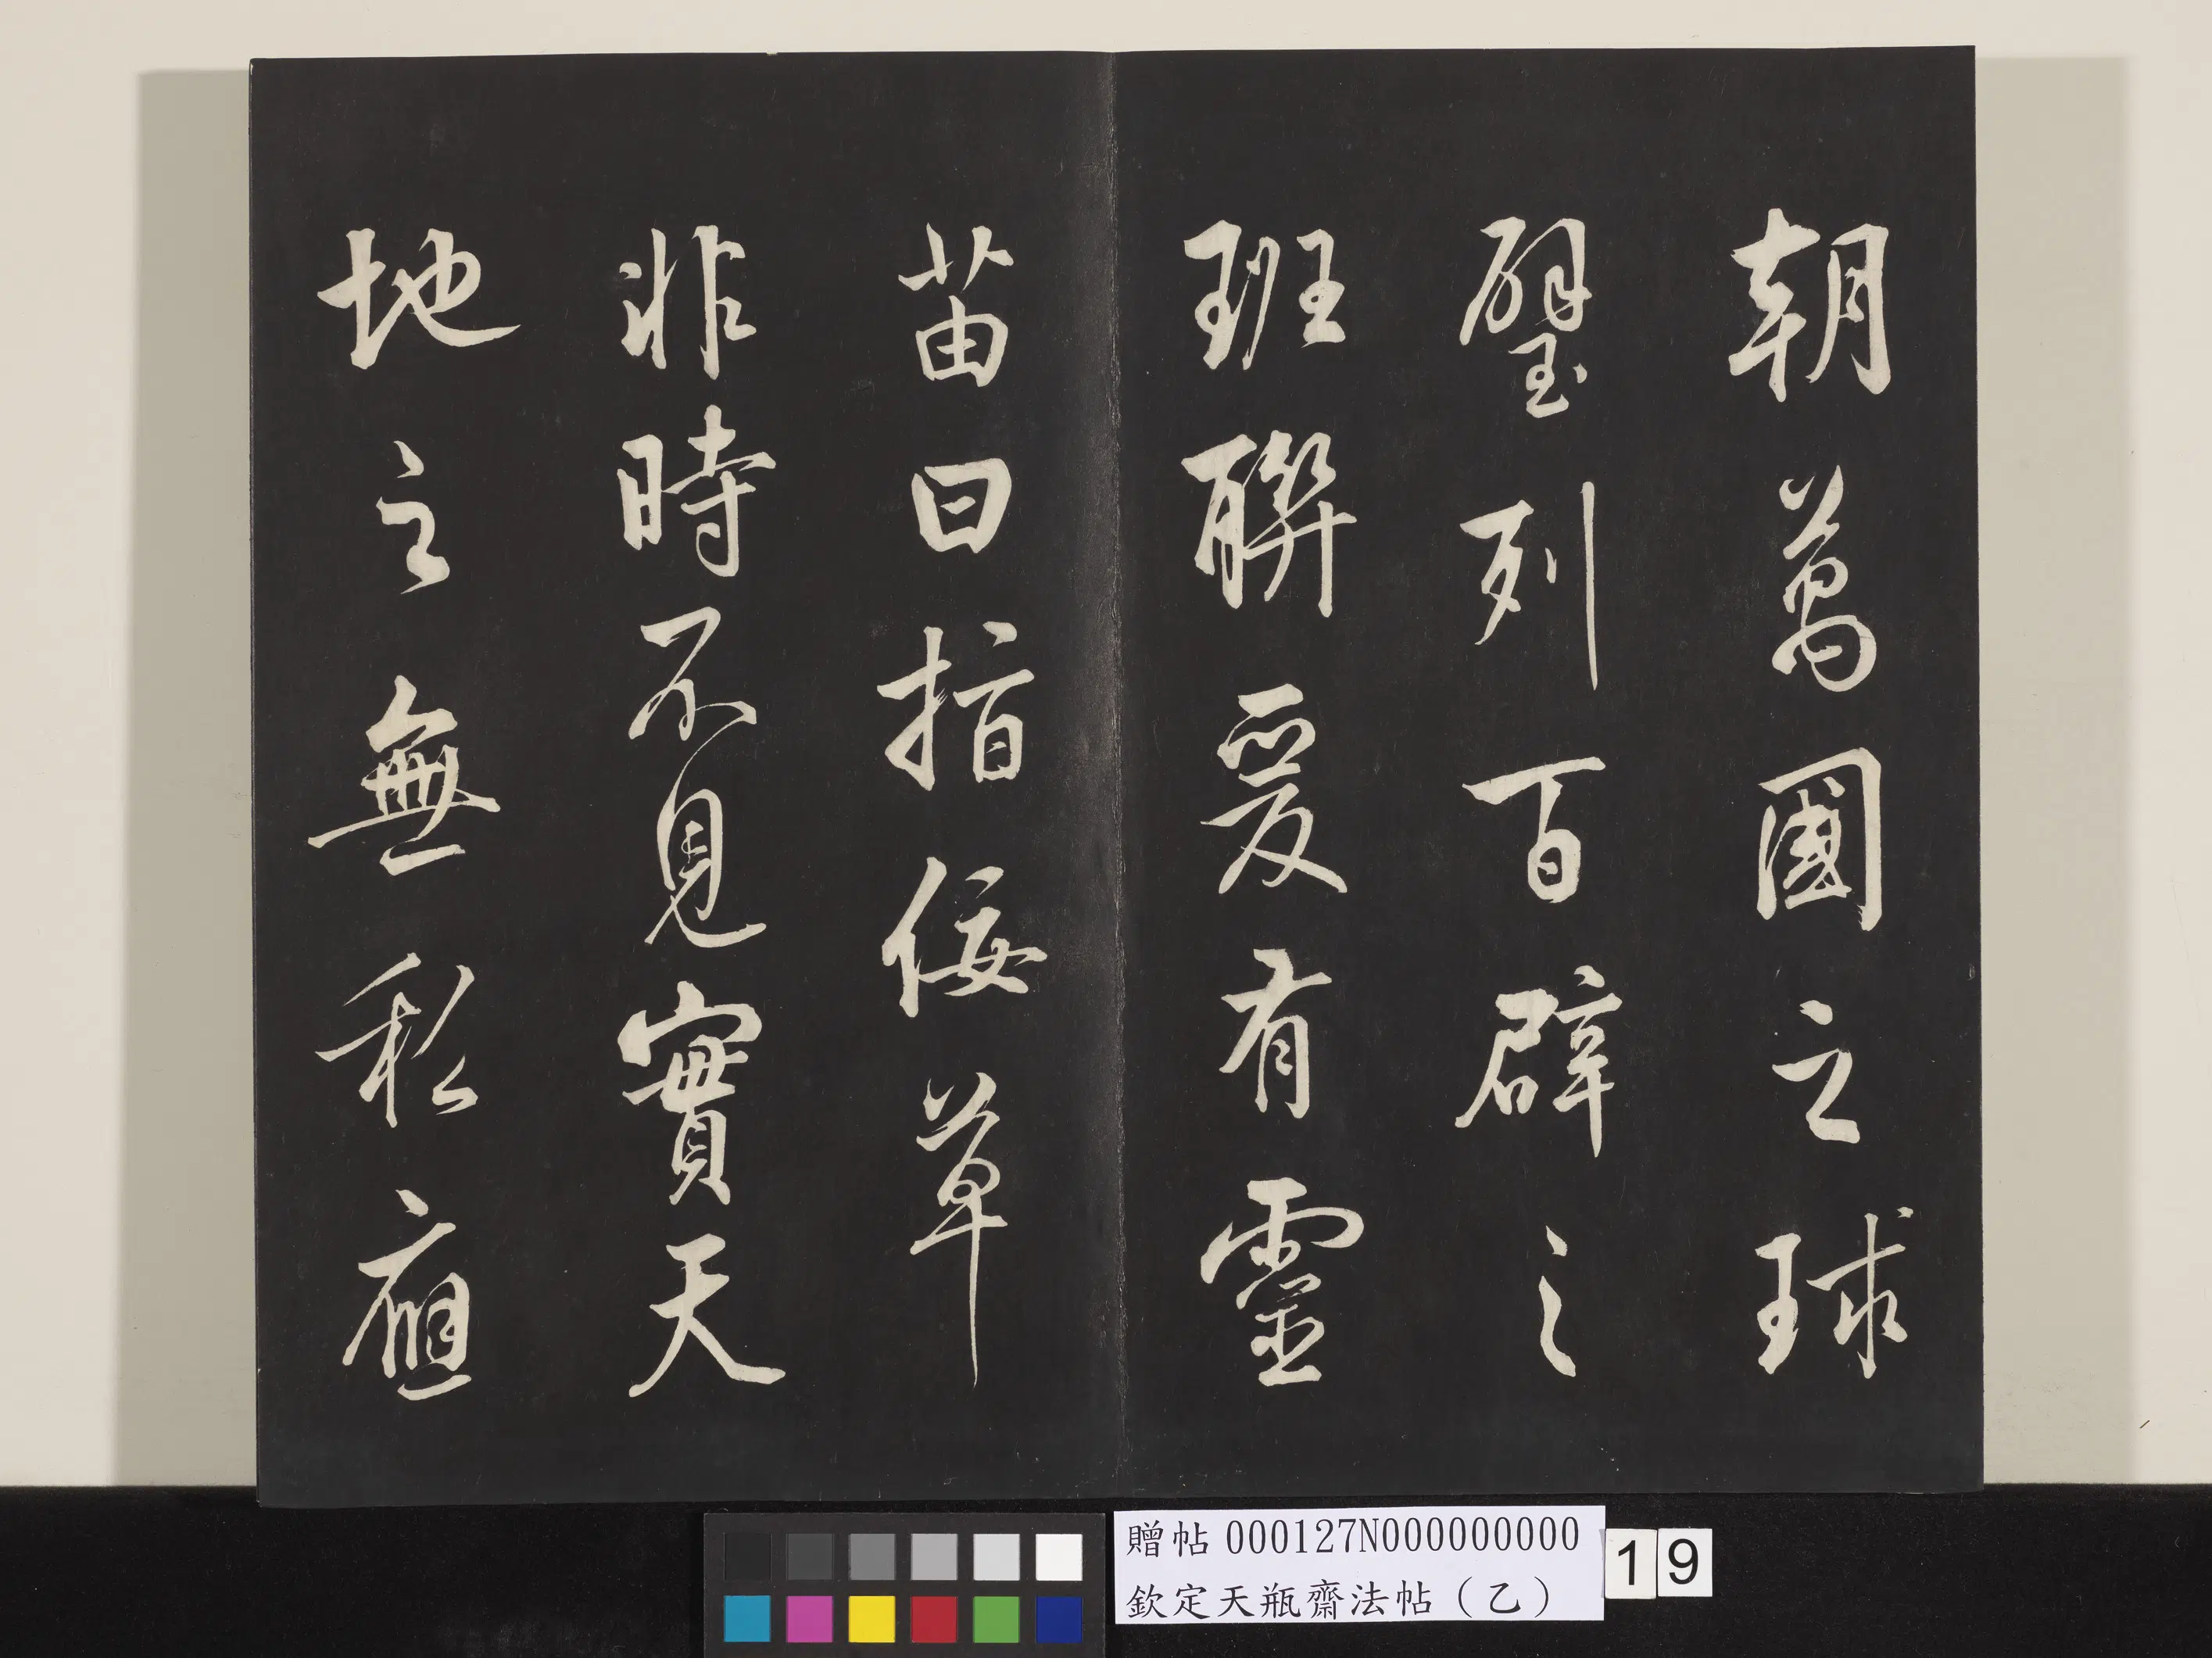 朝萬國之球
璧列百辟之
班聯爰有靈
苗曰指佞草
非時不見實天
地之無私應
贈帖000127N000000000
欽定天瓶齋法帖（乙）
19